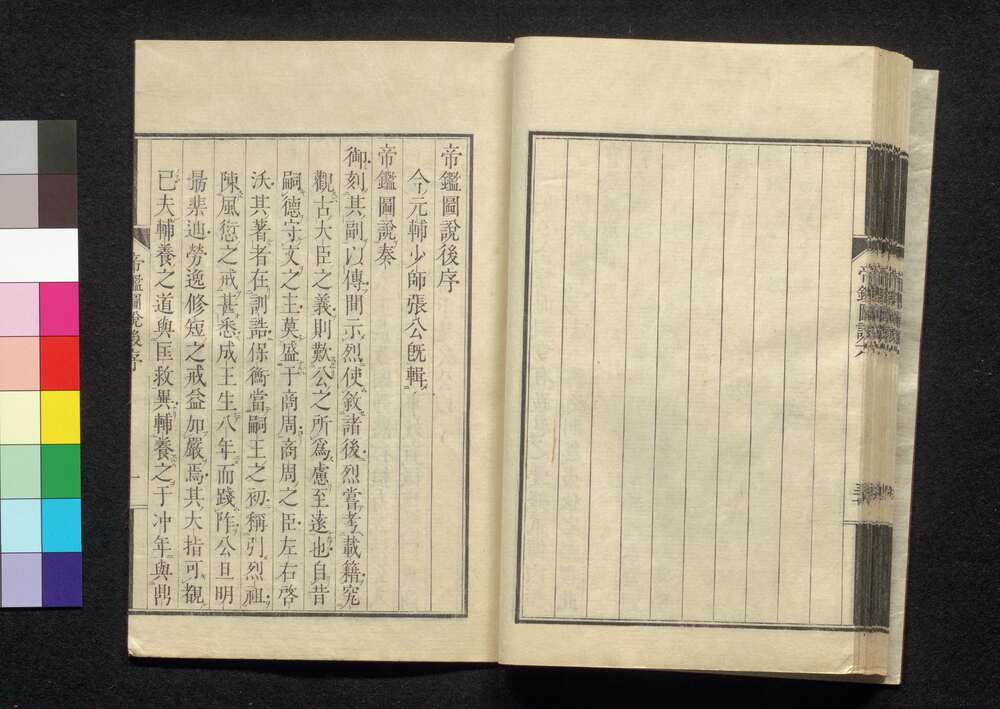 帝鑑圖說後序
今元輔少師張公既輯
帝鑑圖說奏
御刻其副以傳間示烈使敘諸後烈嘗考載籍究
觀古大臣之義則歎公之所爲慮至遠也自昔
嗣德守文之主莫盛于商周商周之臣左右啓
沃其著者在訓誥保衡當嗣王之初稱引烈祖
陳風愆之戒甚悉成王生八年而踐阼公旦明
勗棐迪勞逸修短之戒益加嚴焉其大指可覩
已夫輔養之道與匡救異輔養之于冲年與鼎
帝鑑圖說後序
一
帝鑑圖說六